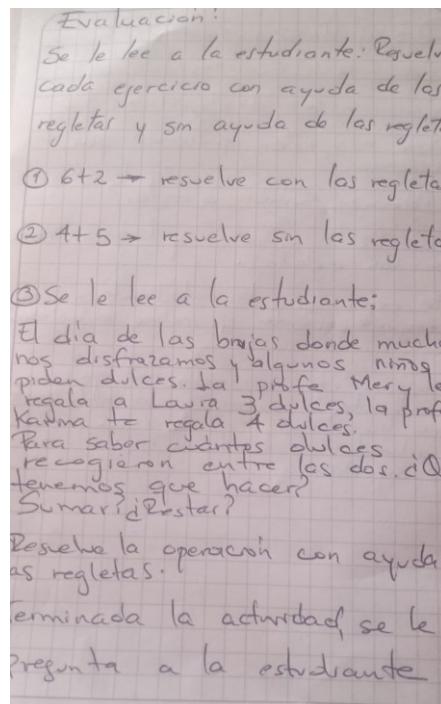 Evaluacion:
Se le lee a la estudiante: Resuelv
cada ejercicio con ayuda de las
regletas y sin ayuda de las reglet
① 6+2 → resuelve con las regleta
② 4+5 → resuelve sin las regleta
③ Se le lee a la estudiante:
El dia de las brujas donde much
nos disfrazamos y algunos niños
piden dulces. La profe Mery l
regala a Laura 3 dulces, la prof
Karina te regala 4 dulces.
Para saber cuántos dulces
recogieron entre las dos. ¿Q
tenemos que hacer?
Sumar? ¿Restar?
Resuelve la operación con ayuda
as regletas.
erminada la actividad, se le
pregunta a la estudiante